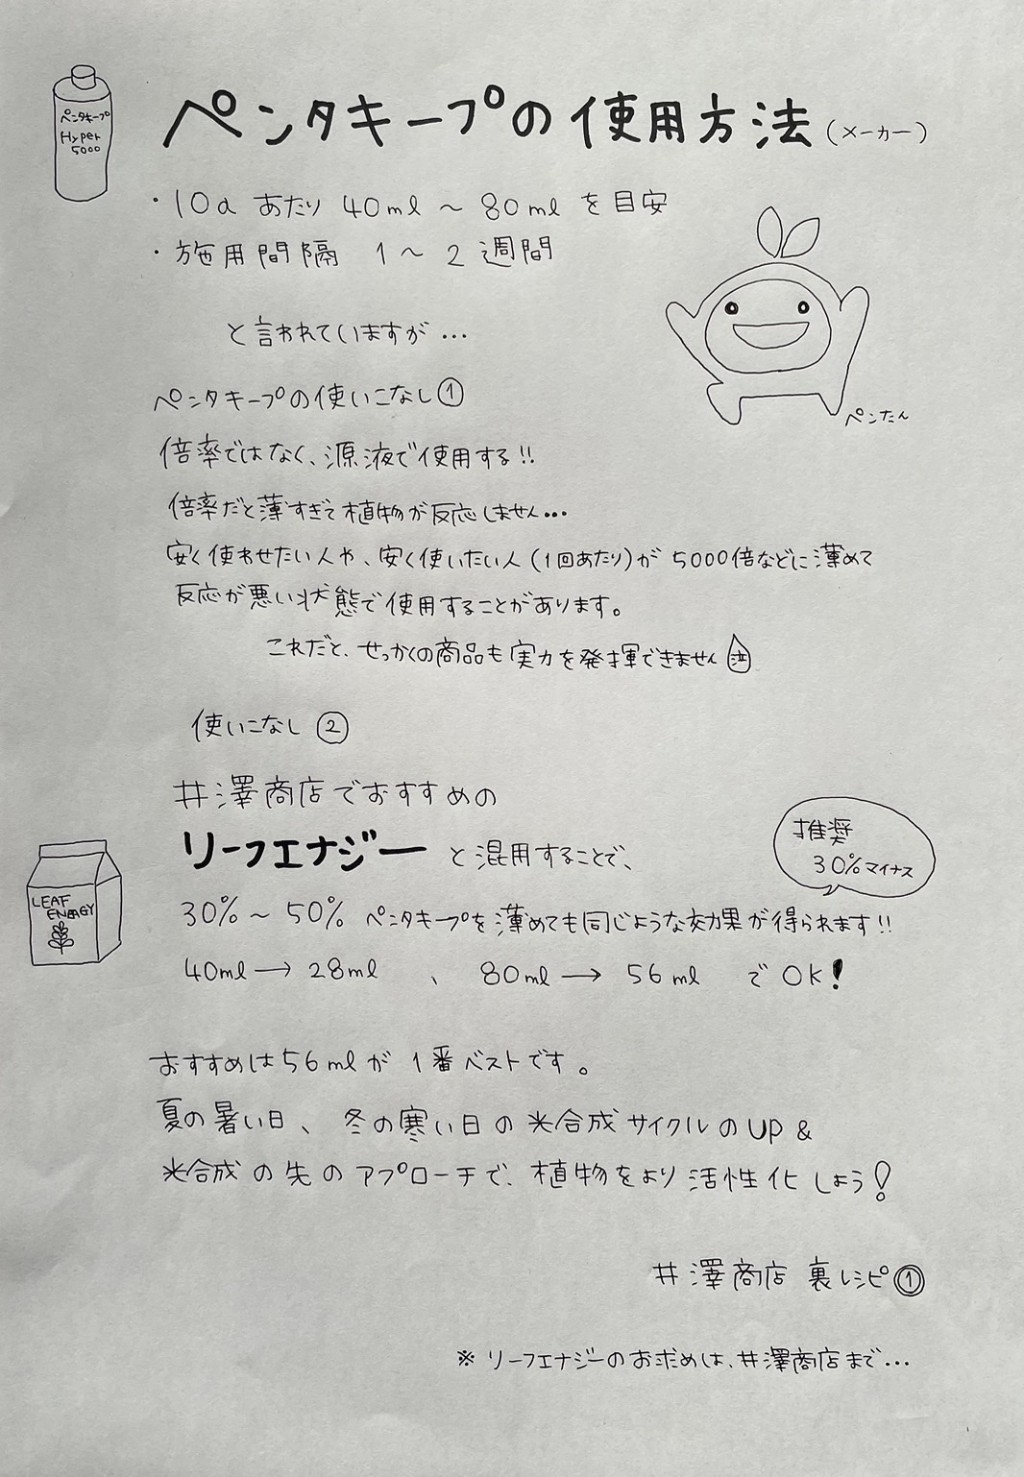 ペンタキープ
Hyper
5000
ペンタキープの使用方法(メーカー)
・10aあたり 40ml～80mlを目安
・施用間隔 1～2週間
と言われていますが…
ペンたん
ペンタキープの使いこなし①
倍率ではなく、源液で使用する!!
倍率だと薄すぎて植物が反応しません…
安く使わせたい人や、安く使いたい人(1回あたり)が5000倍などに薄めて
反応が悪い状態で使用することがあります。
これだと、せっかくの商品も実力を発揮できません泣
使いこなし②
井澤商店でおすすめの
リーフエナジーと混用することで、
推奨
30%マイナス
LEAF
ENERGY
30%～50%ペンタキープを薄めても同じような効果が得られます!!
40ml→28ml、80ml→56mlでOK!
おすすめは56mlが1番ベストです。
夏の暑い日、冬の寒い日の光合成サイクルのUP&
光合成の先のアプローチで、植物をより活性化しよう!
井澤商店 裏レシピ①
※リーフエナジーのお求めは、井澤商店まで…